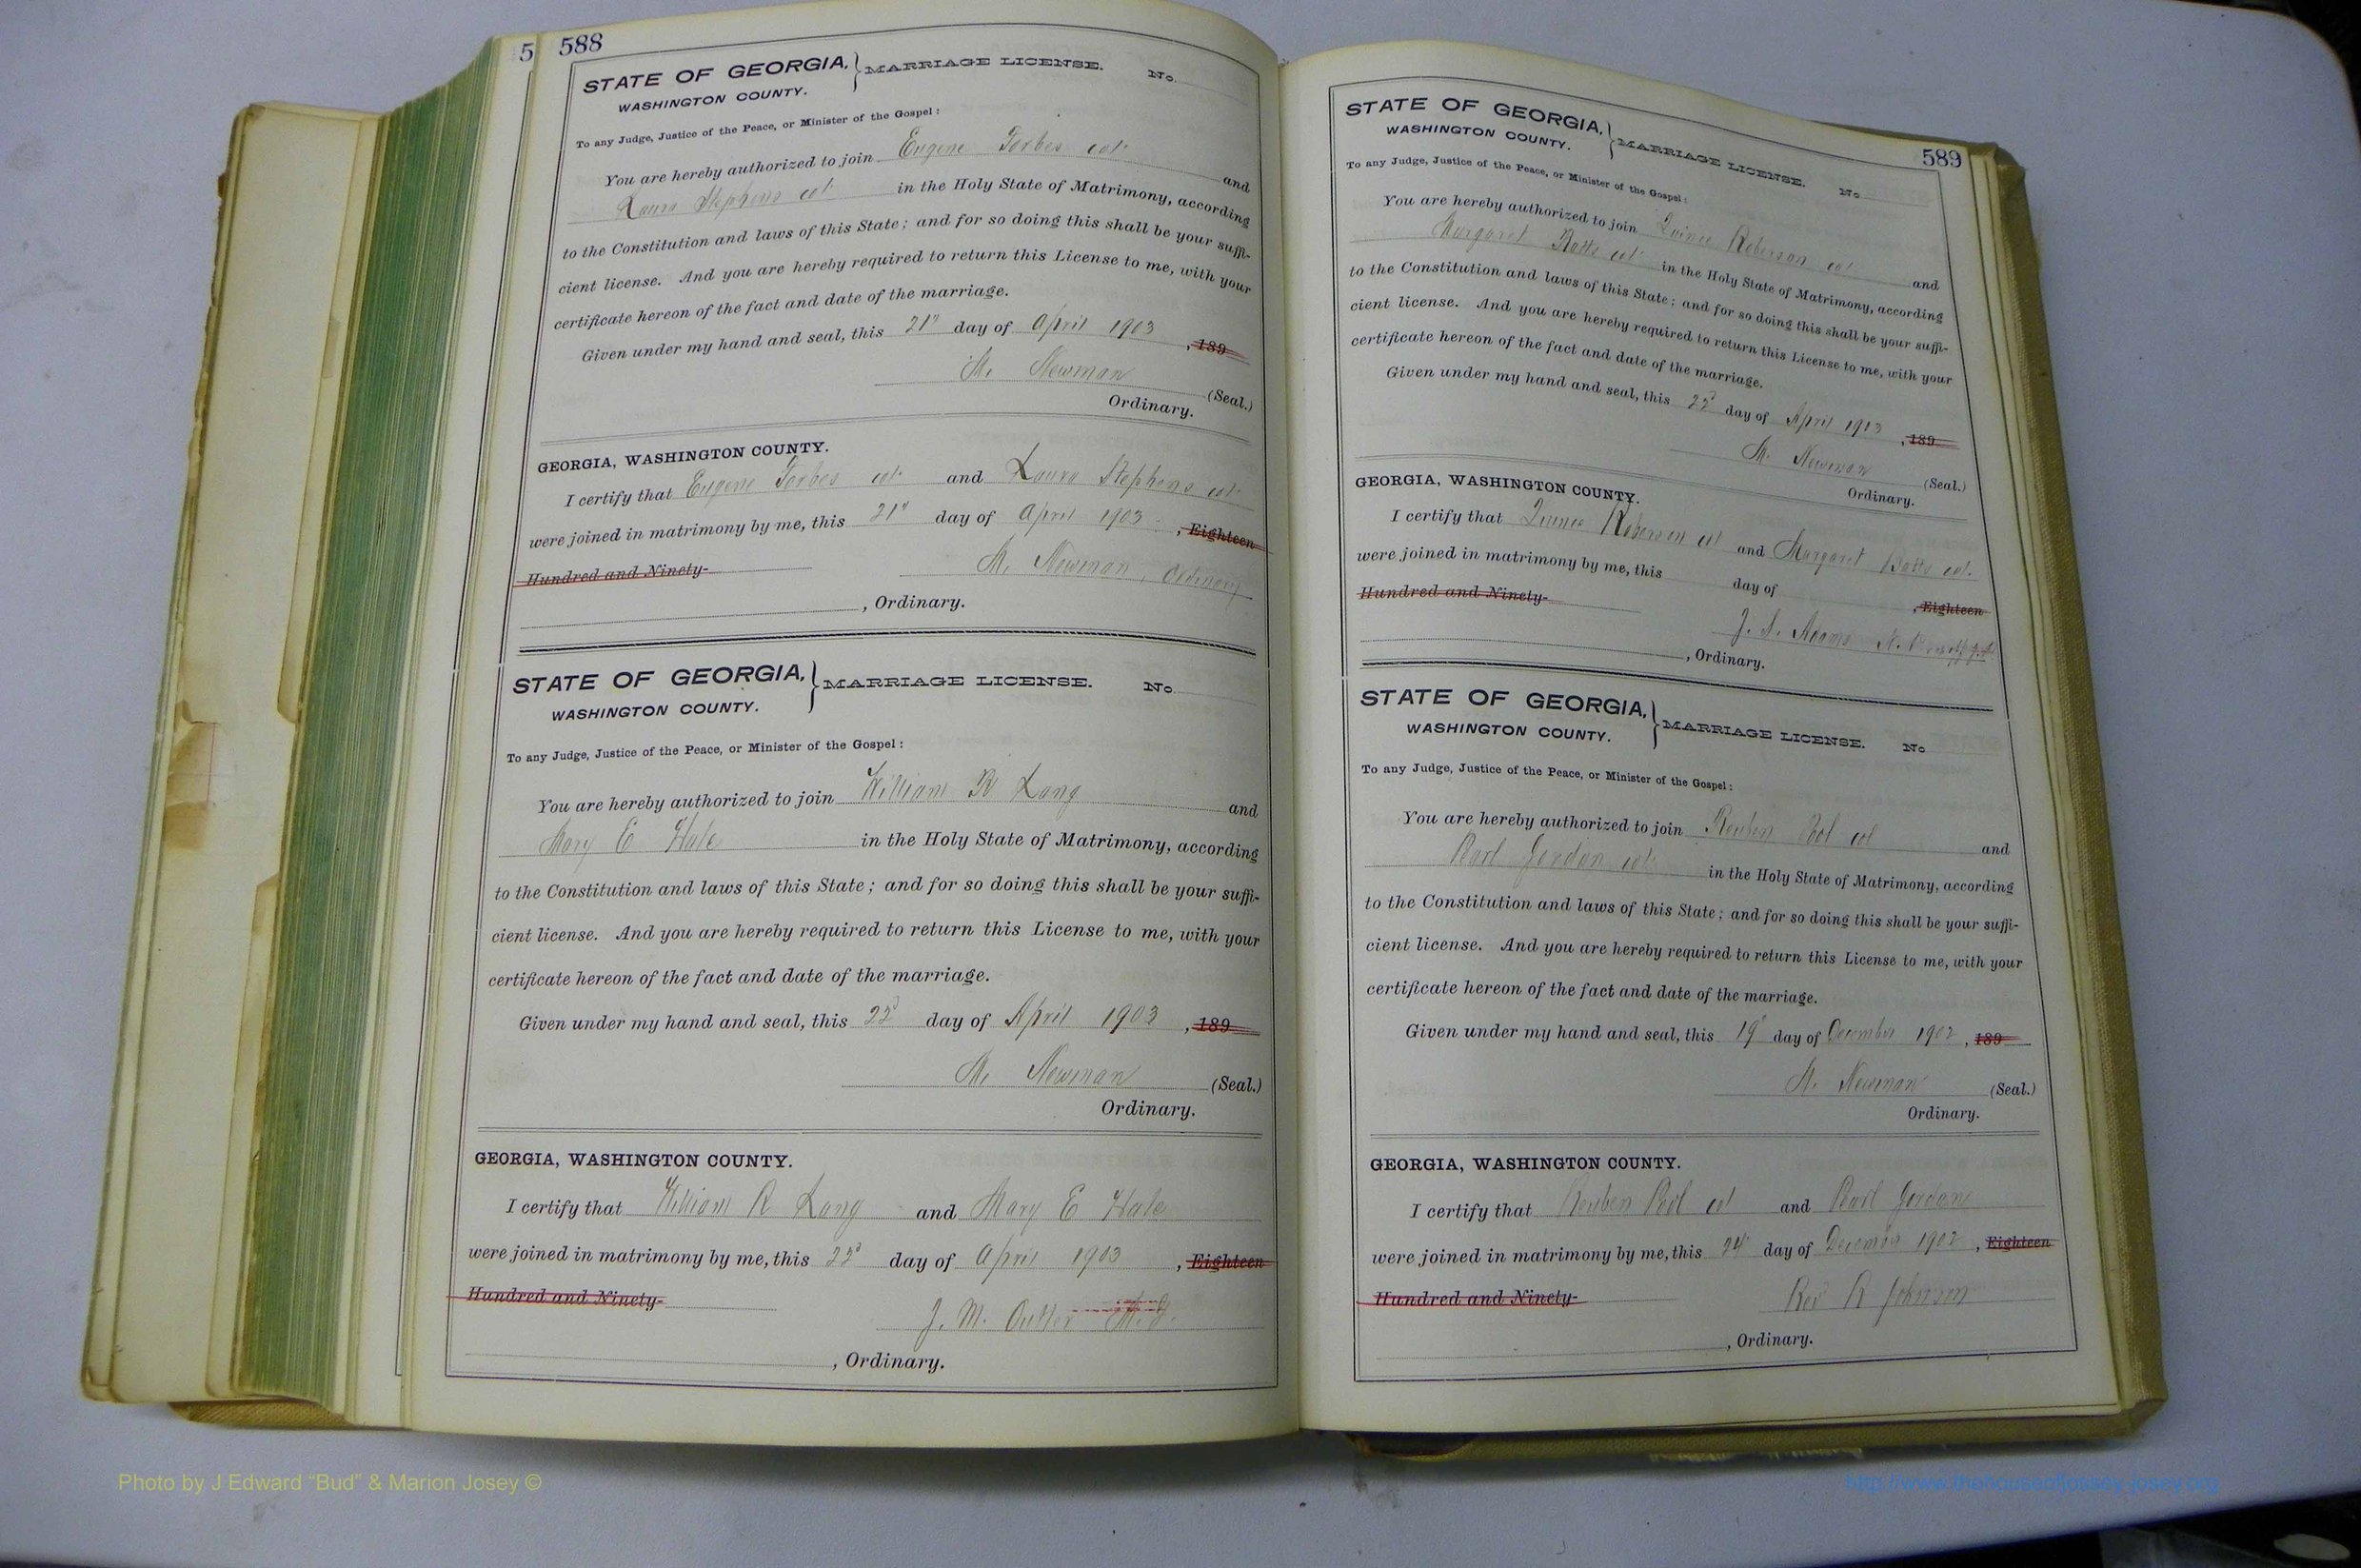 5 588
STATE OF GEORGIA, } MARRIAGE LICENSE. No.
WASHINGTON COUNTY.
To any Judge, Justice of the Peace, or Minister of the Gospel:
You are hereby authorized to join Eugene Forbes col. and
Laura Stephens col. in the Holy State of Matrimony, according
to the Constitution and laws of this State; and for so doing this shall be your suffi-
cient license. And you are hereby required to return this License to me, with your
certificate hereon of the fact and date of the marriage.
Given under my hand and seal, this 21st day of April 1903, 189
M. Newman (Seal.)
Ordinary.
GEORGIA, WASHINGTON COUNTY.
I certify that Eugene Forbes col. and Laura Stephens col.
were joined in matrimony by me, this 21st day of April 1903, Eighteen
Hundred and Ninety-
M. Newman, Ordinary
, Ordinary.
STATE OF GEORGIA, } MARRIAGE LICENSE. No.
WASHINGTON COUNTY.
To any Judge, Justice of the Peace, or Minister of the Gospel:
You are hereby authorized to join William R Lang and
Mary E Hale in the Holy State of Matrimony, according
to the Constitution and laws of this State; and for so doing this shall be your suffi-
cient license. And you are hereby required to return this License to me, with your
certificate hereon of the fact and date of the marriage.
Given under my hand and seal, this 22d day of April 1903, 189
M. Newman (Seal.)
Ordinary.
GEORGIA, WASHINGTON COUNTY.
I certify that William R Lang and Mary E Hale
were joined in matrimony by me, this 22d day of April 1903, Eighteen
Hundred and Ninety-
J. M. Outler M.G.
, Ordinary.
589
STATE OF GEORGIA, } MARRIAGE LICENSE. No.
WASHINGTON COUNTY.
To any Judge, Justice of the Peace, or Minister of the Gospel:
You are hereby authorized to join Quince Roberson col. and
Margaret Batts col. in the Holy State of Matrimony, according
to the Constitution and laws of this State; and for so doing this shall be your suffi-
cient license. And you are hereby required to return this License to me, with your
certificate hereon of the fact and date of the marriage.
Given under my hand and seal, this 22d day of April 1903, 189
M. Newman (Seal.)
Ordinary.
GEORGIA, WASHINGTON COUNTY.
I certify that Quince Roberson col and Margaret Batts col.
were joined in matrimony by me, this day of , Eighteen
Hundred and Ninety-
Adams
, Ordinary.
STATE OF GEORGIA, } MARRIAGE LICENSE. No
WASHINGTON COUNTY.
To any Judge, Justice of the Peace, or Minister of the Gospel:
You are hereby authorized to join Reuben Pool col and
Pearl Jordan col. in the Holy State of Matrimony, according
to the Constitution and laws of this State; and for so doing this shall be your suffi-
cient license. And you are hereby required to return this License to me, with your
certificate hereon of the fact and date of the marriage.
Given under my hand and seal, this 19 day of December 1902, 189
M. Newman (Seal.)
Ordinary.
GEORGIA, WASHINGTON COUNTY.
I certify that Reuben Pool col and Pearl Jordan
were joined in matrimony by me, this 24 day of December 1902, Eighteen
Hundred and Ninety-
Rev R Johnson
, Ordinary.
Photo by J Edward “Bud” & Marion Josey ©
http://www.thehouseofjossey-josey.org